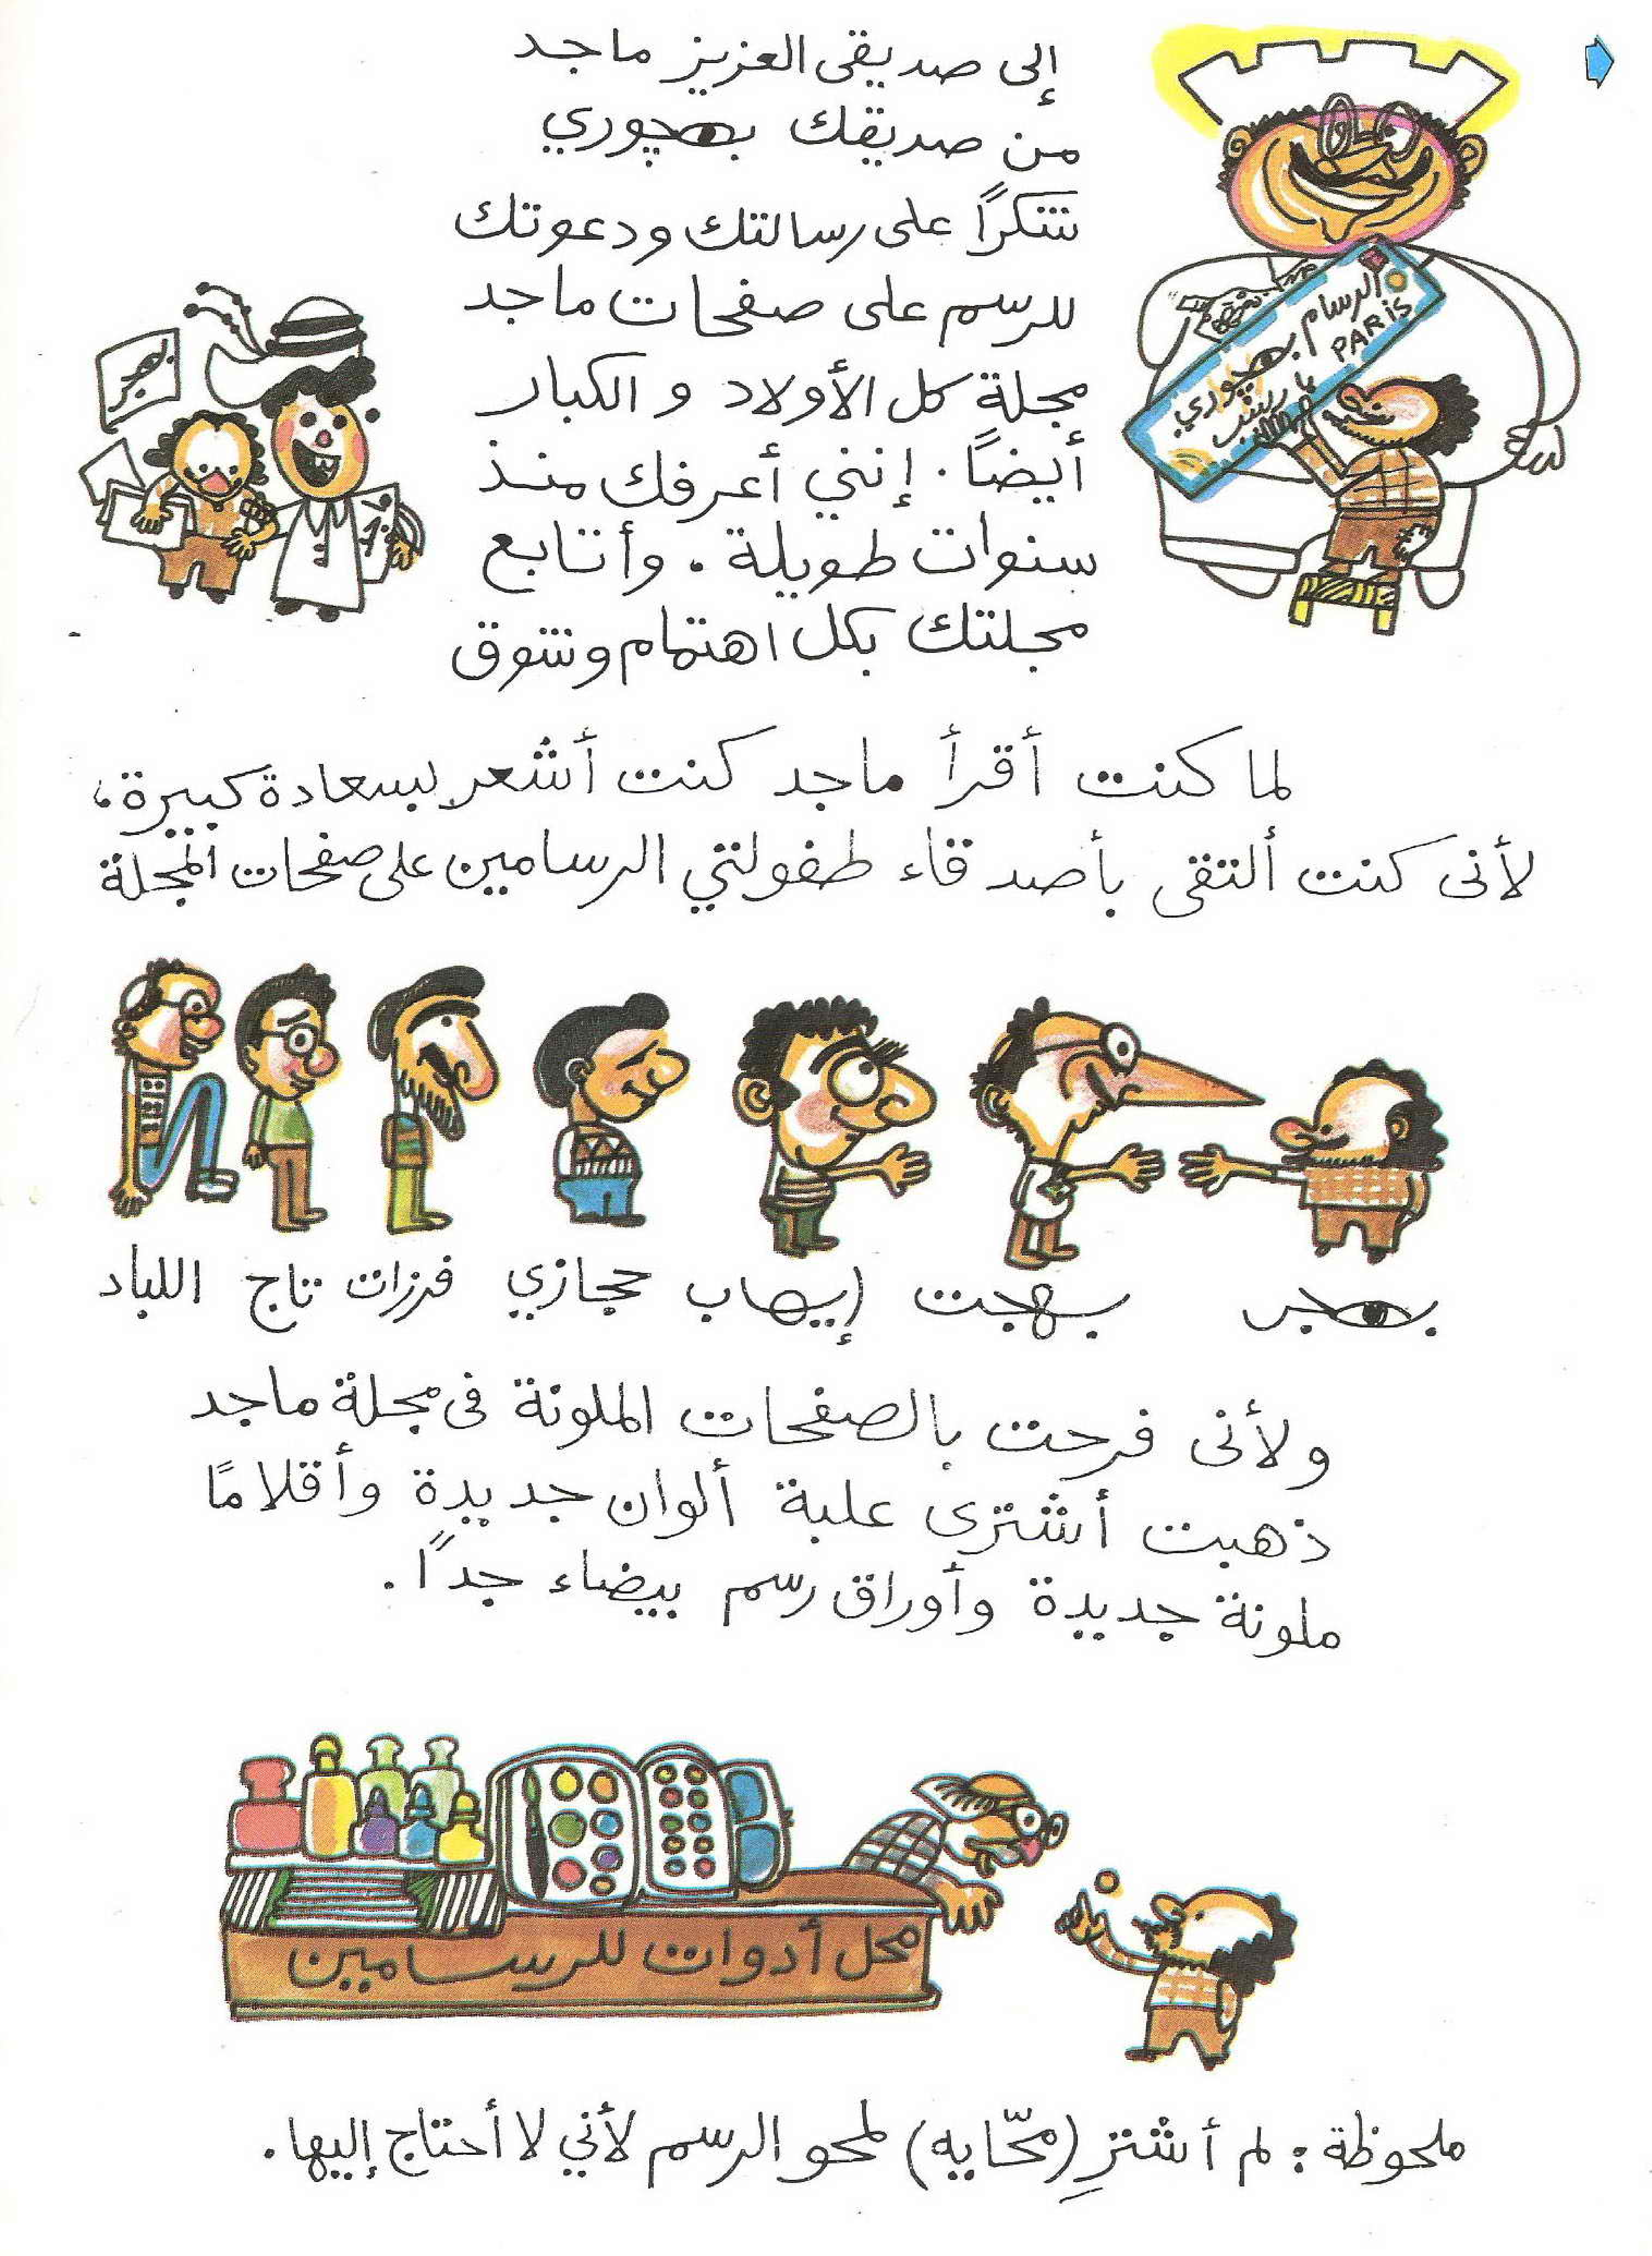 إلى صديقى العزيز ماجد
من صديقك بهچوري
شكرًا على رسالتك ودعوتك
للرسم على صفحات ماجد
مجلة كل الأولاد و الكبار
أيضاً. إنني أعرفك منذ
سنوات طويلة. وأتابع
مجلتك بكل اهتمام وشوق
الرسام بهچوري
PARIS
باريس
بهجر
لما كنت أقرأ ماجد كنت أشعر بسعادة كبيرة،
لأنى كنت ألتقى بأصدقاء طفولتي الرسامين على صفحات المجلة
بهجر بهجت إيهاب حجازي فرزات تاج اللباد
ولأنى فرحت بالصفحات الملونة فى مجلة ماجد
ذهبت أشترى علبة ألوان جديدة وأقلامًا
ملونة جديدة وأوراق رسم بيضاء جدًا.
محل أدوات للرسامين
ملحوظة: لم أشترِ (محّايه) لمحو الرسم لأني لا أحتاج إليها.